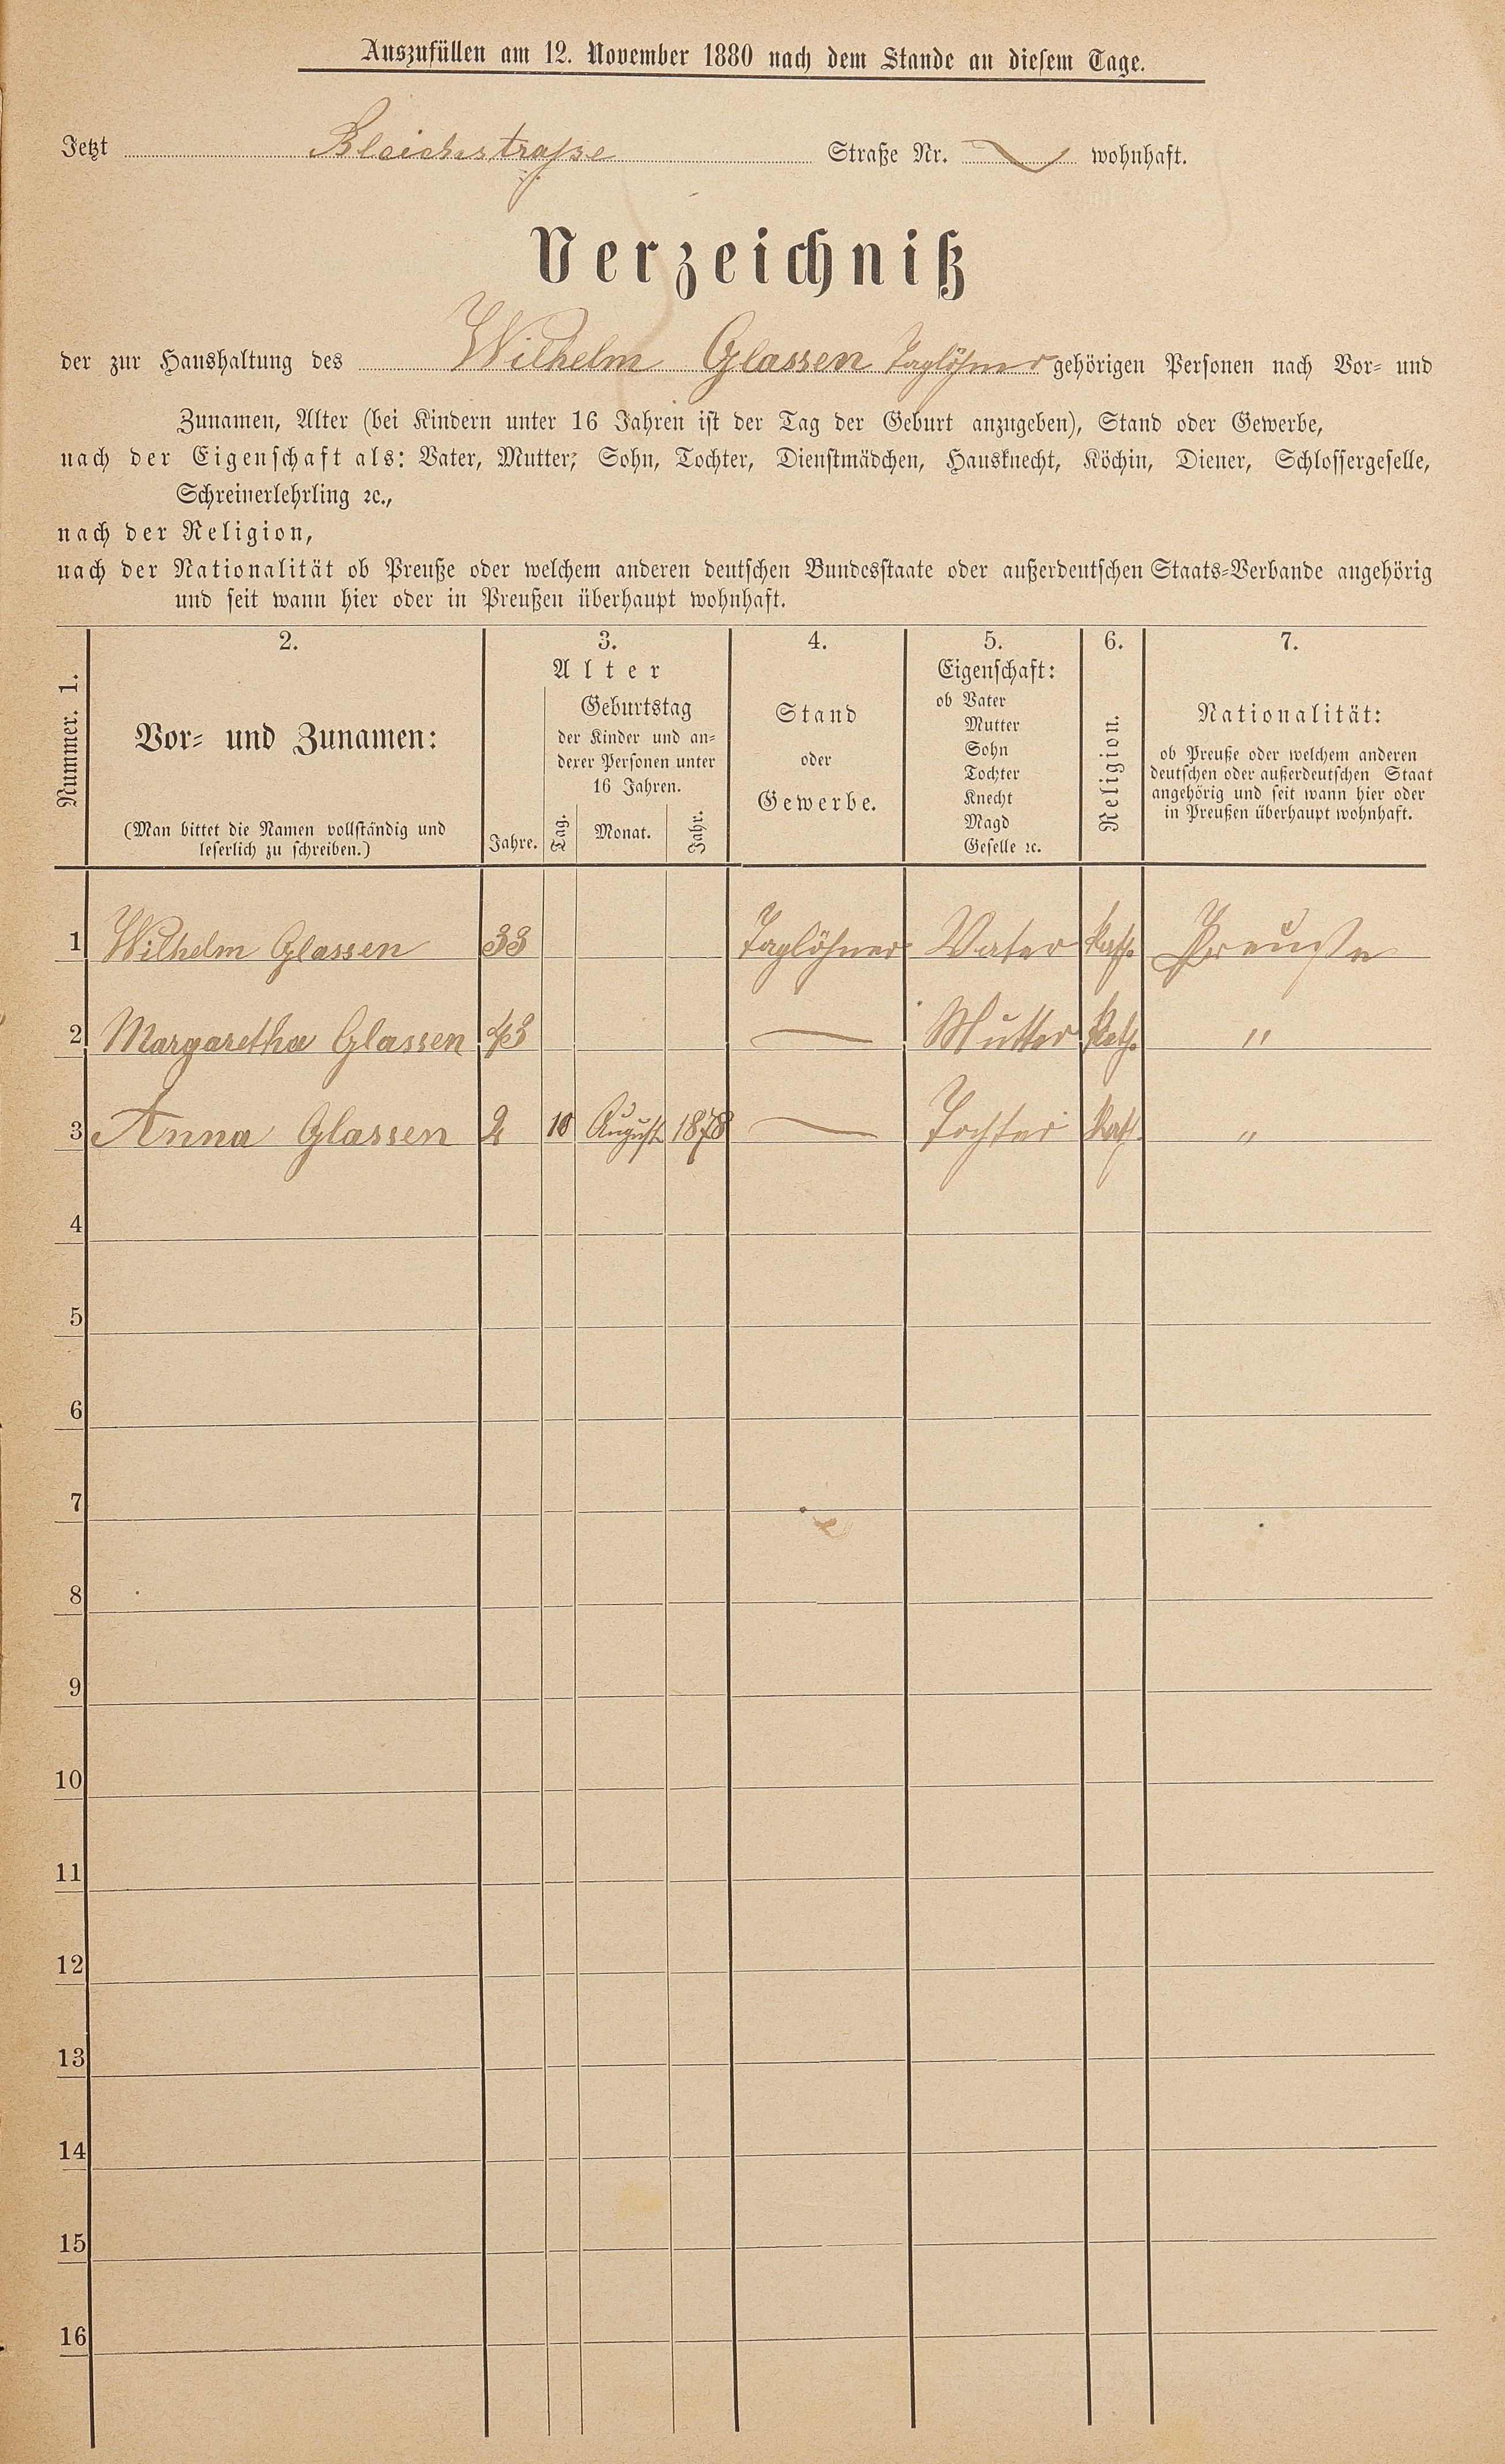 Auszufüllen am 12. November 1880 nach dem Stande an diesem Tage.
Jetzt Bleichstraße Straße Nr. wohnhaft.
Verzeichniß
der zur Haushaltung des Wilhelm Glassen Taglöhner gehörigen Personen nach Vor- und
Zunamen, Alter (bei Kindern unter 16 Jahren ist der Tag der Geburt anzugeben), Stand oder Gewerbe,
nach der Eigenschaft als: Vater, Mutter, Sohn, Tochter, Dienstmädchen, Hausknecht, Köchin, Diener, Schlossergeselle,
Schreinerlehrling ꝛc.,
nach der Religion,
nach der Nationalität ob Preuße oder welchem anderen deutschen Bundesstaate oder außerdeutschen Staats-Verbande angehörig
und seit wann hier oder in Preußen überhaupt wohnhaft.
Nummer. 1.
2.
Vor- und Zunamen:
(Man bittet die Namen vollständig und
leserlich zu schreiben.)
3.
Alter
Jahre.
Geburtstag
der Kinder und an-
derer Personen unter
16 Jahren.
Tag. Monat. Jahr.
4.
Stand
oder
Gewerbe.
5.
Eigenschaft:
ob Vater
Mutter
Sohn
Tochter
Knecht
Magd
Geselle ꝛc.
6.
Religion.
7.
Nationalität:
ob Preuße oder welchem anderen
deutschen oder außerdeutschen Staat
angehörig und seit wann hier oder
in Preußen überhaupt wohnhaft.
1 Wilhelm Glassen 33 Taglöhner Vater kath. Preuße
2 Margaretha Glassen 43 — Mutter kath. "
3 Anna Glassen 2 10 August 1878 — Tochter kath. "
4
5
6
7
8
9
10
11
12
13
14
15
16